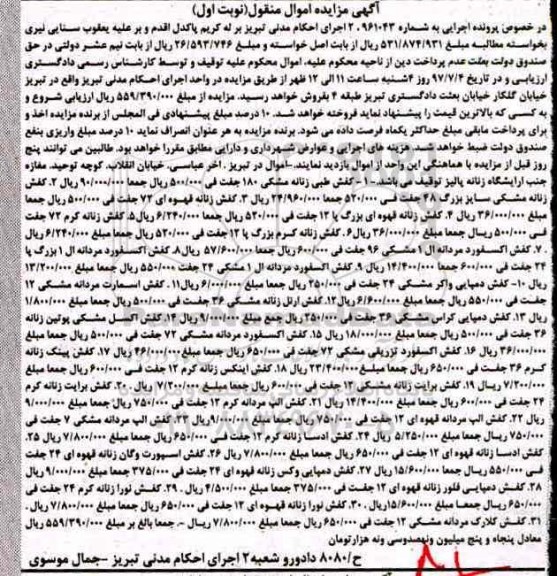 آگهی مزایده اموال منقول(نوبت اول)
در خصوص پرونده اجرایی به شماره ۲۰۹۶۱۰۴۳ اجرای احکام مدنی تبریز بر له کریم پاکدل اقدم و بر علیه یعقوب سنایی نیری
بخواسته مطالبه مبلغ ۵۳۱/۸۷۴/۹۳۱ ریال از بابت اصل خواسته و مبلغ ۲۶/۵۹۳/۷۴۶ ریال از بابت نیم عشر دولتی در حق
صندوق دولت بعلت عدم پرداخت دین از ناحیه محکوم علیه، اموال محکوم علیه توقیف و توسط کارشناس رسمی دادگستری
ارزیابی و در تاریخ ۹۷/۷/۴ روز ۴شنبه ساعت ۱۱ الی ۱۲ ظهر از طریق مزایده در واحد اجرای احکام مدنی تبریز واقع در تبریز
خیابان گلکار خیابان بعثت دادگستری تبریز طبقه ۴ بفروش خواهد رسید. مزایده از مبلغ ۵۵۹/۳۹۰/۰۰۰ ریال ارزیابی شروع و
به کسی که بالاترین قیمت را پیشنهاد نماید فروخته خواهد شد. ۱۰ درصد مبلغ پیشنهادی فی المجلس از برنده مزایده اخذ و
برای پرداخت مابقی مبلغ حداکثر یکماه فرصت داده می شود. برنده مزایده به هر عنوان انصراف نماید ۱۰ درصد مبلغ واریزی بنفع
صندوق دولت ضبط خواهد شد. هزینه های اجرایی و عوارض شهرداری و دارایی مطابق مقررا خواهد بود. طالبین می توانند پنج
روز قبل از مزایده با هماهنگی این واحد از اموال بازدید نمایند.-اموال در تبریز . اخر عباسی، خیابان انقلاب، کوچه توحید، مغازه
جنب ارایشگاه زنانه پالیز توقیف می باشند.۱. کفش طبی زنانه مشکی ۱۸۰ جفت فی ۵۰۰/۰۰۰ ریال جمعا ۹۰/۰۰۰/۰۰۰ ریال ۲. کفش
زنانه مشکی سایز بزرگ ۴۸ جفت فی ۵۲۰/۰۰۰ جمعا ۲۴/۹۶۰/۰۰۰ ریال ۳. کفش زنانه قهوه ای ۷۲ جفت فی ۵۰۰/۰۰۰ ریال جمعا
مبلغ ۳۶/۰۰۰/۰۰۰ ریال ۴. کفش زنانه قهوه ای بزرگ پا ۱۲ جفت فی ۵۲۰/۰۰۰ ریال جمعا ۶/۲۴۰/۰۰۰ ریال ۵. کفش زنانه کرم ۷۲ جفت
فی ۵۰۰/۰۰۰ ریسال جمعا مبلغ ۳۶/۰۰۰/۰۰۰ ریال۶. کفش زنانه کرم بزرگ پا ۱۲ جفت فی ۵۲۰/۰۰۰ ریال جمعا مبلغ ۶/۲۴۰/۰۰۰ ریال
۷. کفش اکسفورد مردانه ال ۱ مشکی ۹۶ جفت فی ۶۰۰/۰۰۰ ریال جمعا ۵۷/۶۰۰/۰۰۰ ریال۸. کفش اکسفورد مردانه ال ۱ بزرگ پا
۲۴ جفت فی ۶۰۰/۰۰۰ جمعا ۱۴/۴۰۰/۰۰۰ ریال ۹. کفش اکسفورد مردانه ال ۱ مشکی ۲۴ جفت ۵۵۰/۰۰۰ ریال جمعا مبلغ ۱۳/۲۰۰/۰۰۰
ریال ۱۰- کفش دمپایی واکر مشکی ۲۴ جفت فی ۲۵۰/۰۰۰ ریال جمع مبلغ ۶/۰۰۰/۰۰۰ ریال۱۱. کفش اسمارت مردانه مشکی ۱۲
جفت فی ۵۵۰/۰۰۰ ریال جمعا مبلغ ۶/۶۰۰/۰۰۰ ریال۱۲. کفش ارنل زنانه مشکی ۳۶ جفت فی ۵۰۰/۰۰۰ ریال جمعا مبلغ ۱/۸۰۰/۰۰۰
ریال ۱۳. کفش دمپایی کراس مشکی ۳۶ جفت فی ۲۵۰/۰۰۰ ریال جمع مبلغ ۹/۰۰۰/۰۰۰ ریال ۱۴. کفش اکسل مشکی پوتین زنانه
۳۶ جفت فی ۵۰۰/۰۰۰ ریال جمعا مبلغ ۱۸/۰۰۰/۰۰۰ ریال ۱۵. کفش اکسفورد مردانه مشکی ۷۲ جفت فی ۵۰۰/۰۰۰ ریال جمعا مبلغ
۳۶/۰۰۰/۰۰۰ ریال ۱۶. کفش اکسفورد تزریقی مشکی ۷۲ جفت فی ۶۵۰/۰۰۰ ریال جمعا مبلغ ۴۶/۰۰۰/۰۰۰ ریال ۱۷. کفش پینک زنانه
کرم ۳۶ جفت فی ۶۵۰/۰۰۰ ریال جمعا مبلغ۲۳/۴۰۰/۰۰۰ ریال ۱۸. کفش اینکس زنانه کرم ۱۲ جفت فی ۶۰۰/۰۰۰ ریال جمعا مبلغ
۷/۲۰۰/۰۰۰ ریال ۱۹. کفش برایت زنانه مشکی ۱۲ جفت فی ۶۰۰/۰۰۰ ریال جمعا مبلغ ۷/۲۰۰/۰۰۰ ریال ۲۰. کفش برایت زنانه کرم
۲۴ جفت فی ۶۰۰/۰۰۰ ریال جمعا مبلغ ۱۴/۴۰۰/۰۰۰ ریال ۲۱. کفش الپ مردانه کرم ۱۲ جفت فی ۷۵۰/۰۰۰ ریال جمعا مبلغ ۹/۰۰۰/۰۰۰
ریال ۲۲. کفش الپ مردانه قهوه ای ۱۲ جفت فی ریال جمعا مبلغ ۹/۰۰۰ ریال ۲۳. کفش الپ مردانه مشکی ۷ جفت فی
۷۵۰/۰۰۰ ریال جمعا مبلغ ۵/۲۵۰/۰۰۰ ریال ۲۴. کفش ادسا زنانه کرم ۱۲ جفت فی ۶۵۰/۰۰۰ ریال جمعا مبلغ ۷/۸۰۰/۰۰۰ ریال ۲۵.
کفش ادسا زنانه قهوه ای ۱۲ جفت فی ۶۵۰/۰۰۰ ریال جمعا مبلغ ۷/۸۰۰/۰۰۰ ریال ۲۶. کفش اسپورت وگان زنانه قهوه ای ۲۴ جفت
فی ۵۵۰/۰۰۰ ریال جمعا ۱۵/۶۰۰/۰۰۰ ریال ۲۷. کفش دمپایی وکس زنانه قهوه ای ۲۴ جفت فی ۳۷۵/۰۰۰ جمعا مبلغ ۹/۰۰۰/۰۰۰ ریال
۲۸. کفش دمپایی فلور زنانه قهوه ای ۱۲ جفت فی ۳۷۵/۰۰۰ جمعا مبلغ ۴/۵۰۰/۰۰۰ ریال . ۲۹. کفش نورا زنانه کرم ۲۴ جفت فی
۶۵۰/۰۰۰ ریال جمعا مبلغ ۱۵/۶۰۰/۰۰۰ریال . ۳۰. کفش نورا زنانه قهوه ای ۱۲ جفت فی ۶۵۰/۰۰۰ ریال جمعا مبلغ ۷/۸۰۰/۰۰۰ ریال .
۳۱. کفش کلارک مردانه مشکی ۱۲ جفت فی ۶۵۰/۰۰۰ ریال جمعا مبلغ ۷/۸۰۰/۰۰۰ ریال .- جمعا بالغ بر مبلغ ۵۵۹/۳۹۰/۰۰۰ ریال
معادل پنجاه و پنج میلیون ونهصدوسی ونه هزارتومان
ح/۸۰۸۰ دادورو شعبه۲ اجرای احکام مدنی تبریز -جمال موسوی